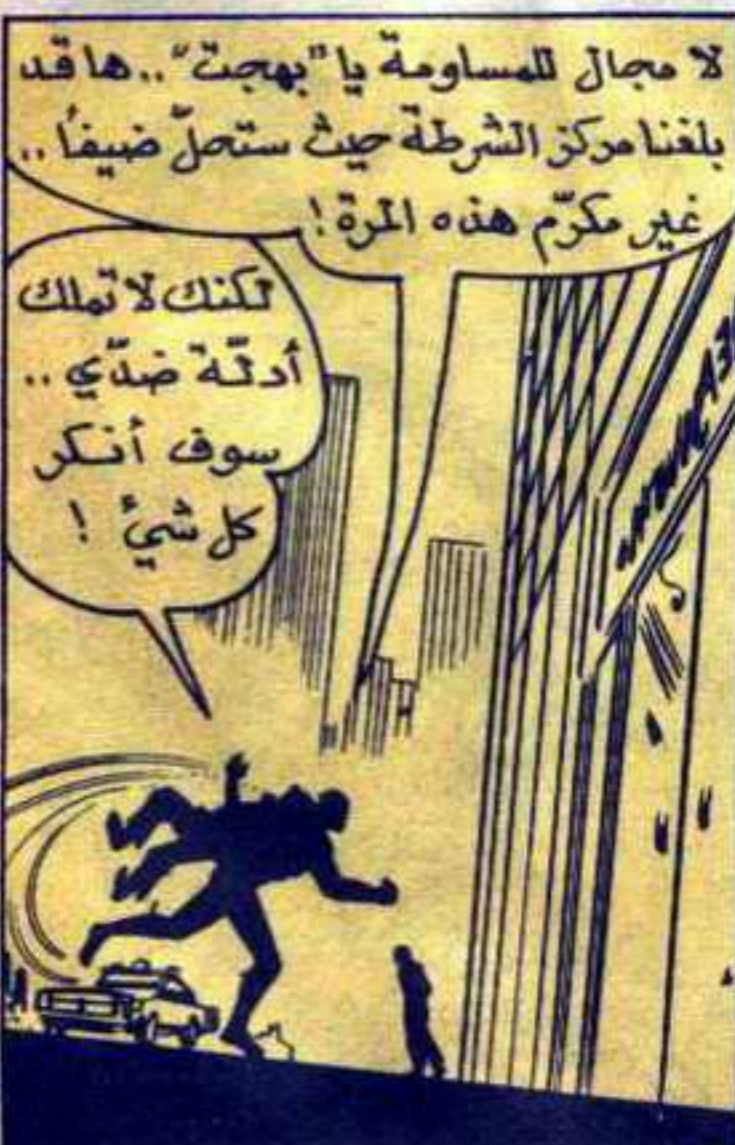 لا مجال للمساومة يا "بهجت".. ها قد
بلغنا مركز الشرطة حيث ستحلّ ضيفاً..
غير مكرّم هذه المرة!
لكنك لا تملك
أدلّة ضدّي..
سوف أنكر
كل شيءٌ !